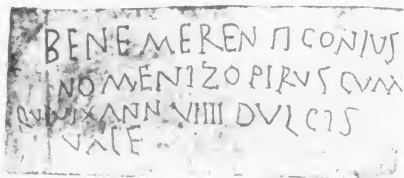 BENE MERENTI CONIUS
NOMENI ZOPIRVS CVM
VIX ANN VIIII DVLCIS
VALE